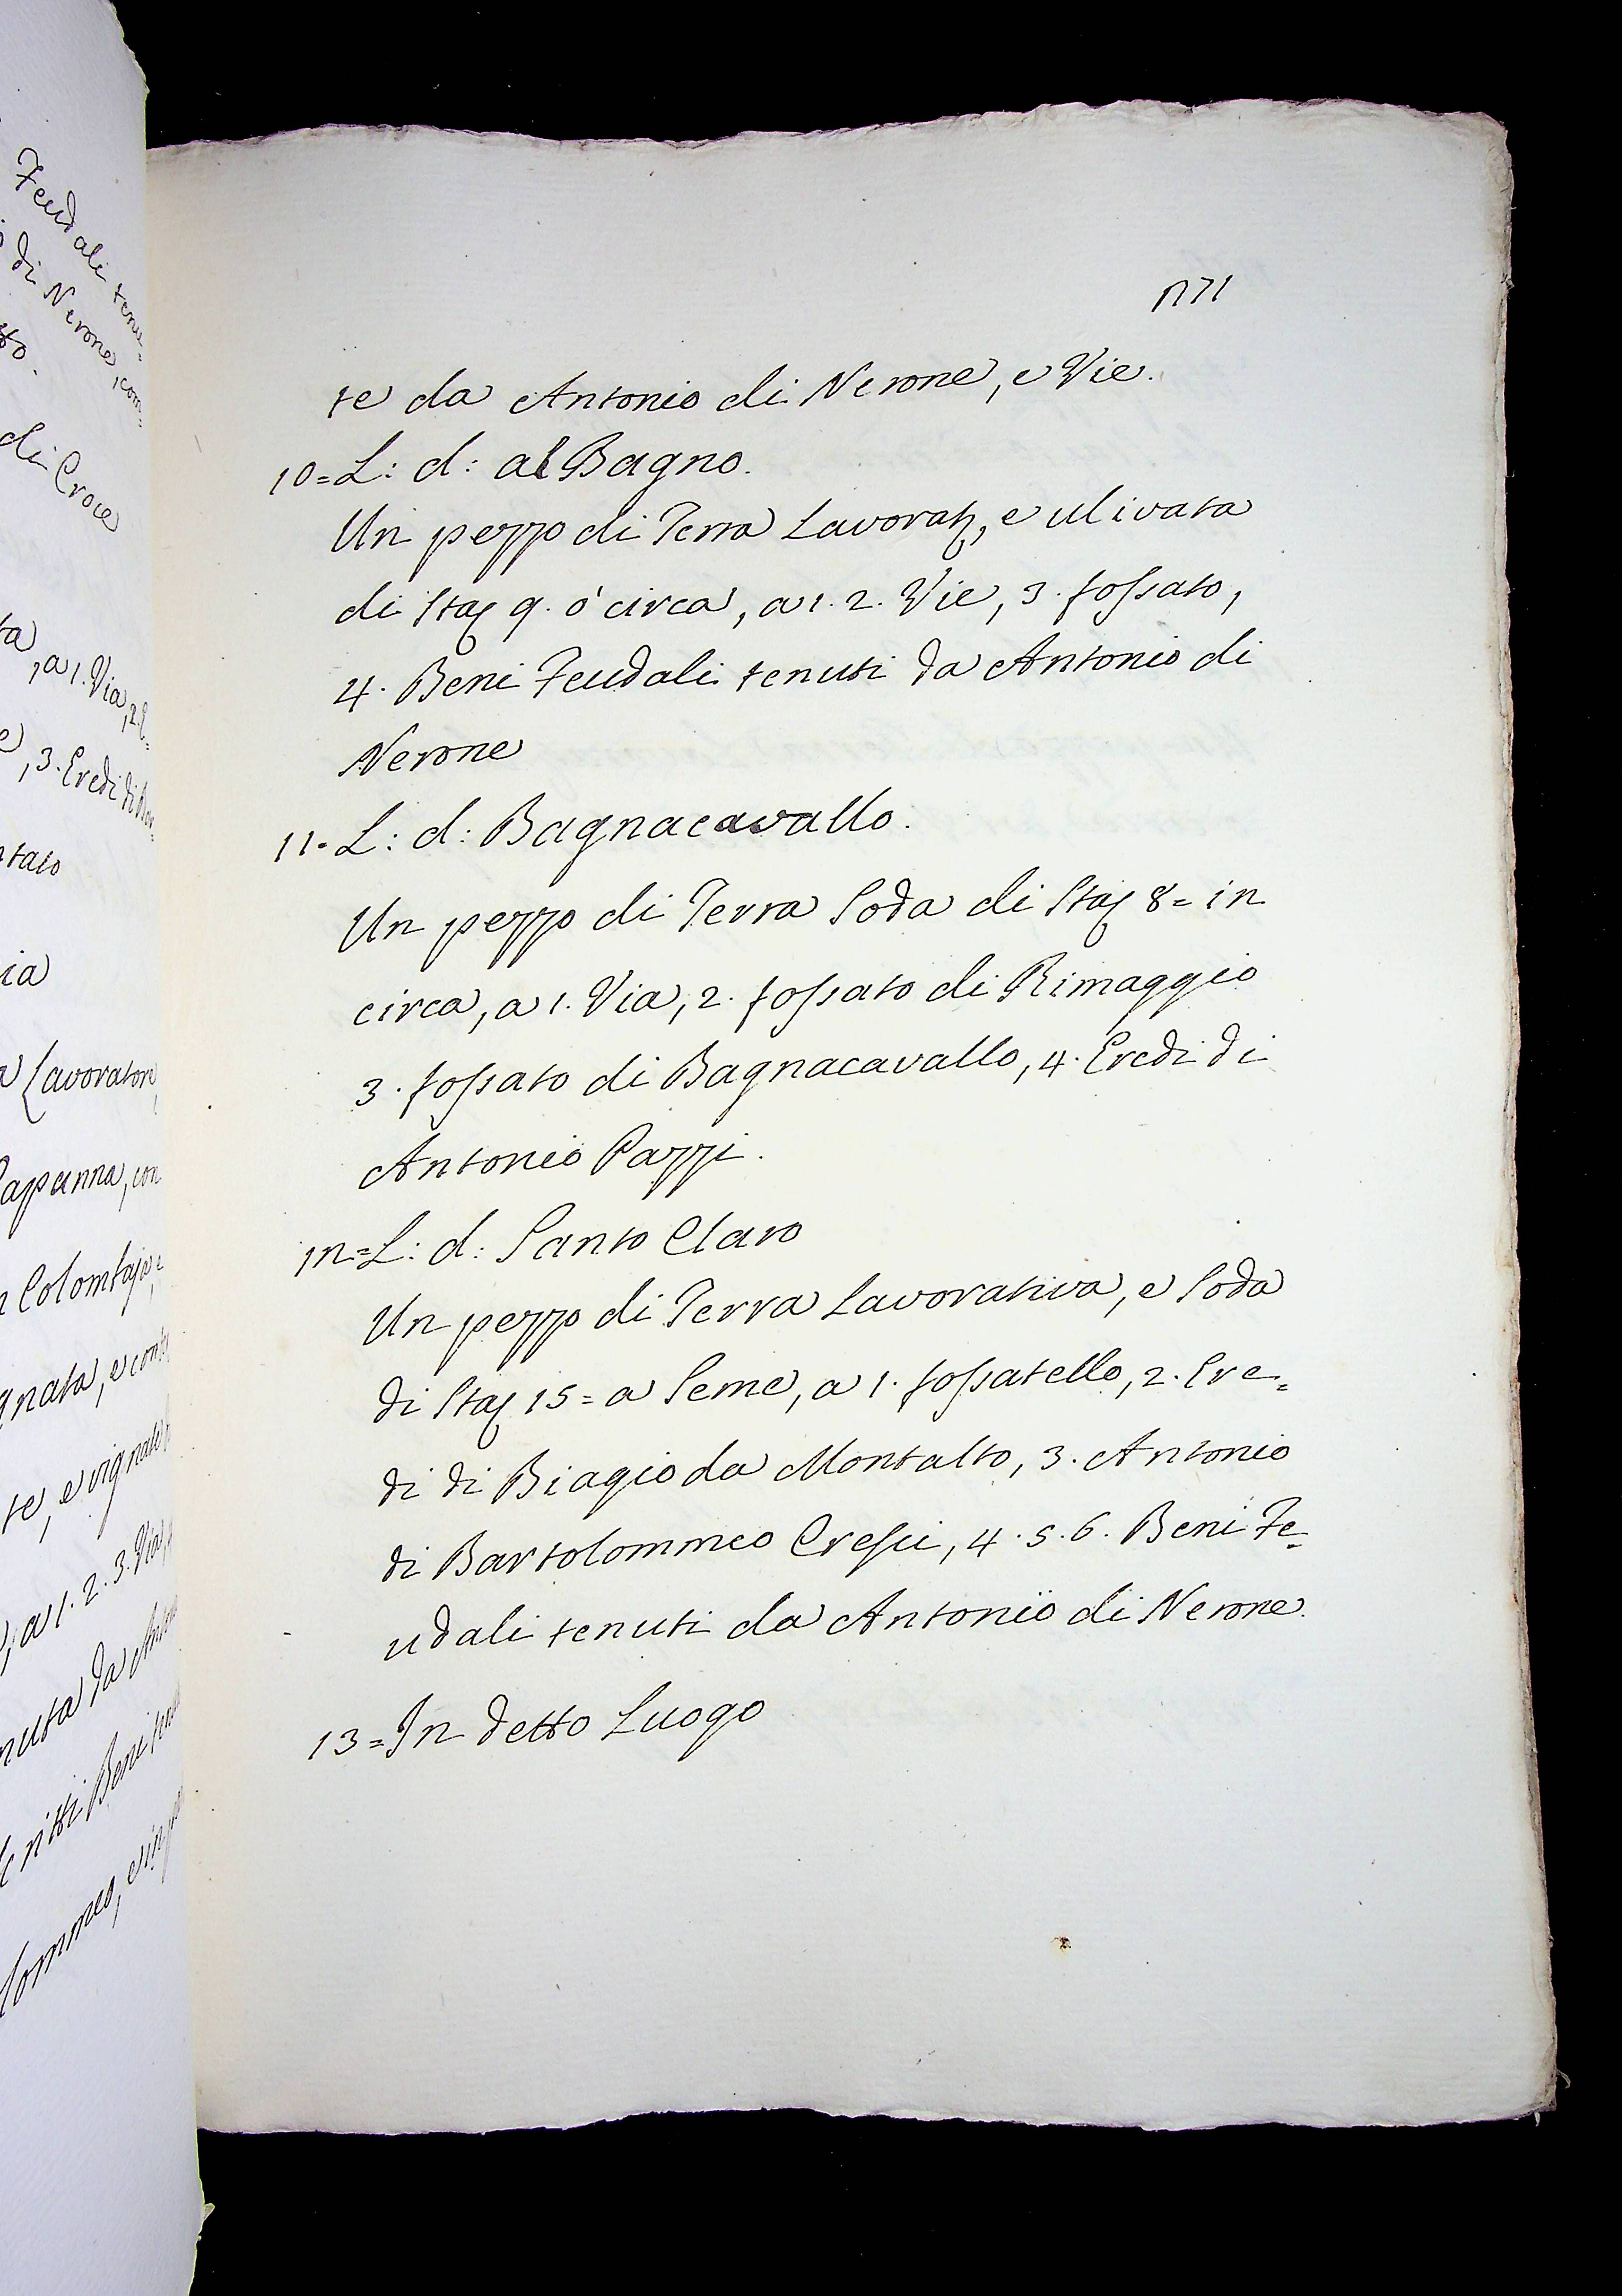 Feudali tenu-
di Nerone, com-
tto.
di Croce
ta, a 1. Via, 2. E-
e, 3. Eredi di
ntato
ia
a Lavorator
Capanna, con
n Colombaja, e
gnata, e con
te, e vignat
a 1. 2. 3. Via
nuta da Anto
ritti Beni
lommeo, e in
1271
te da Antonio di Nerone, e Vie.
10= L: d: al Bagno.
Un pezzo di Terra Lavorat:, e ulivata
di Staj 9. ò circa, a 1. 2. Vie, 3. fossato,
4. Beni Feudali tenuti da Antonio di
Nerone
11= L: d: Bagnacavallo.
Un pezzo di Terra Soda di Staj 8= in
circa, a 1. Via, 2. fossato di Rimaggio
3. fossato di Bagnacavallo, 4. Eredi di
Antonio Pazzi.
12= L: d: Santo Claro
Un pezzo di Terra Lavorativa, e Soda
di Staj 15= a Seme, a 1. fossatello, 2. Ere=
di di Biagio da Montalto, 3. Antonio
di Bartolommeo Cresci, 4. 5. 6. Beni Fe=
udali tenuti da Antonio di Nerone.
13= In detto Luogo